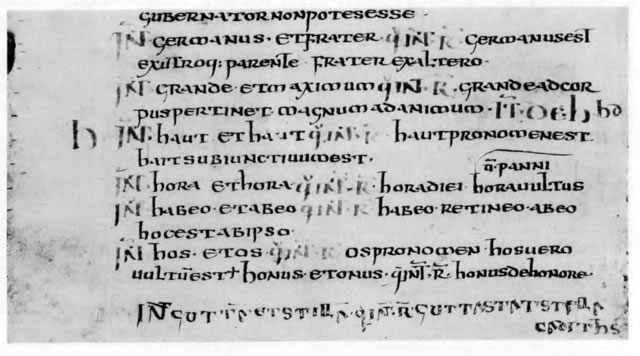 GUBERNATORNONPOTESESSE
IN̄ GERMANUS · ETFRATER · q̄ IN̄T · R̄ · GERMANUSEST
EXUTROQ: PARENTE · FRATER EXALTERO ·
IN̄ GRANDE · ETMAXIMUM q̄ IN̄T · R̄ · GRANDEADCOR
PUSPERTINET · MAGNUMADANIMUM ·
h IN̄ · hAUT · EThAUT q̄ IN̄T · R̄ hAUTPRONOMENEST ·
hAUTSUBIUNCTIUUMEST ·
q̄ · PANNI
IN̄ · hORA · EThORA q̄ IN̄T · R̄ · hORADIEI · hORAUULTUS
IN̄ · hABEO · ETABEO q̄ IN̄T · R̄ · hABEO · RETINEO · ABEO
hOCESTABIPSO ·
IN̄ · hOS · ETOS q̄ IN̄T · R̄ · OSPRONOMEN · hOSUERO
UULTŪEST hONUS · ETONUS · q̄ IN̄T · R̄ · hONUSDEhONORE ·
IN̄ GUTTA ETSTILLA q̄ IN̄ · R̄ GUTTASTAT STILLA
CADIT